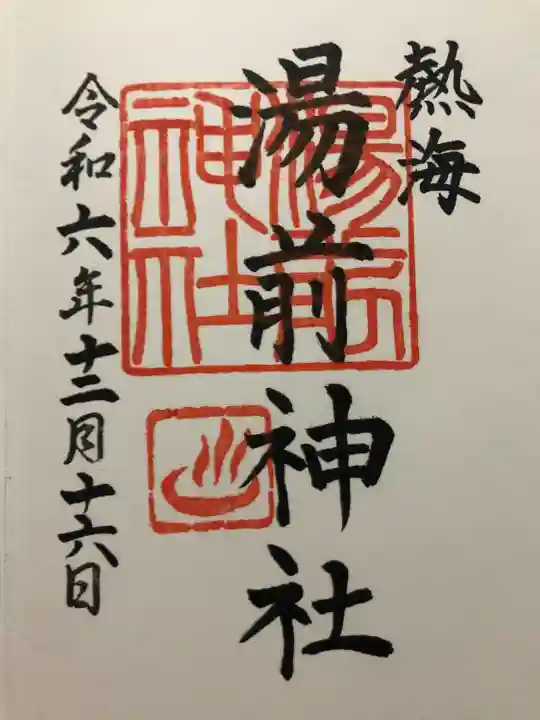 熱海
湯前神社
湯前神社
令和六年十二月十六日